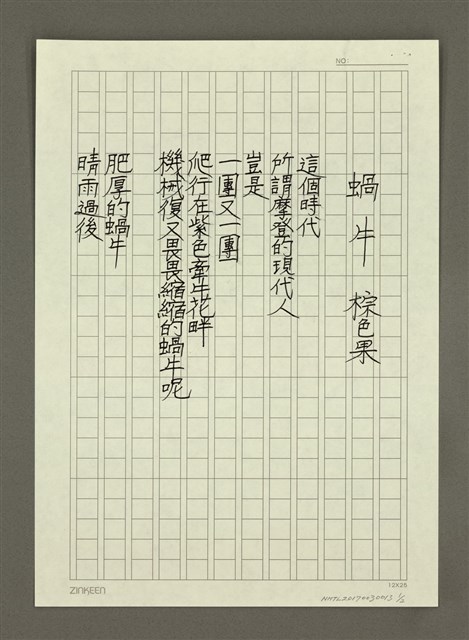 NO:
蝸牛 棕色果
這個時代
所謂摩登的現代人
豈是
一團又一團
爬行在紫色牽牛花畔
機械復又畏畏縮縮的蝸牛呢
肥厚的蝸牛
晴雨過後
ZINKEEN
12X25
NMTL20170030013 1/2